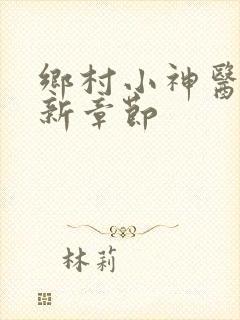 鄉村小神醫
新章節
林莉